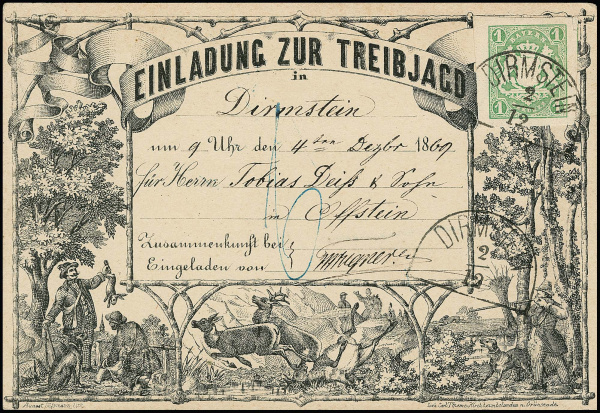 EINLADUNG ZUR TREIBJAGD
in
Dirmstein
um 9 Uhr den 4ten Dezbr 1869
für Herrn Tobias Deiß & Sohn
in Offstein
Zusammenkunft bei
Eingeladen von
1
1
1
1
BAYERN
DIRMSTEIN
2
12
DIRMSTEIN
2
12